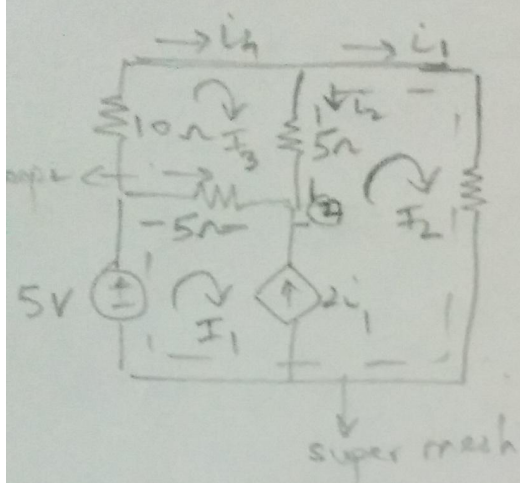 i4 i1
10Ω I3 i2 5Ω
5Ω I2
5V I1 2i1
super mesh